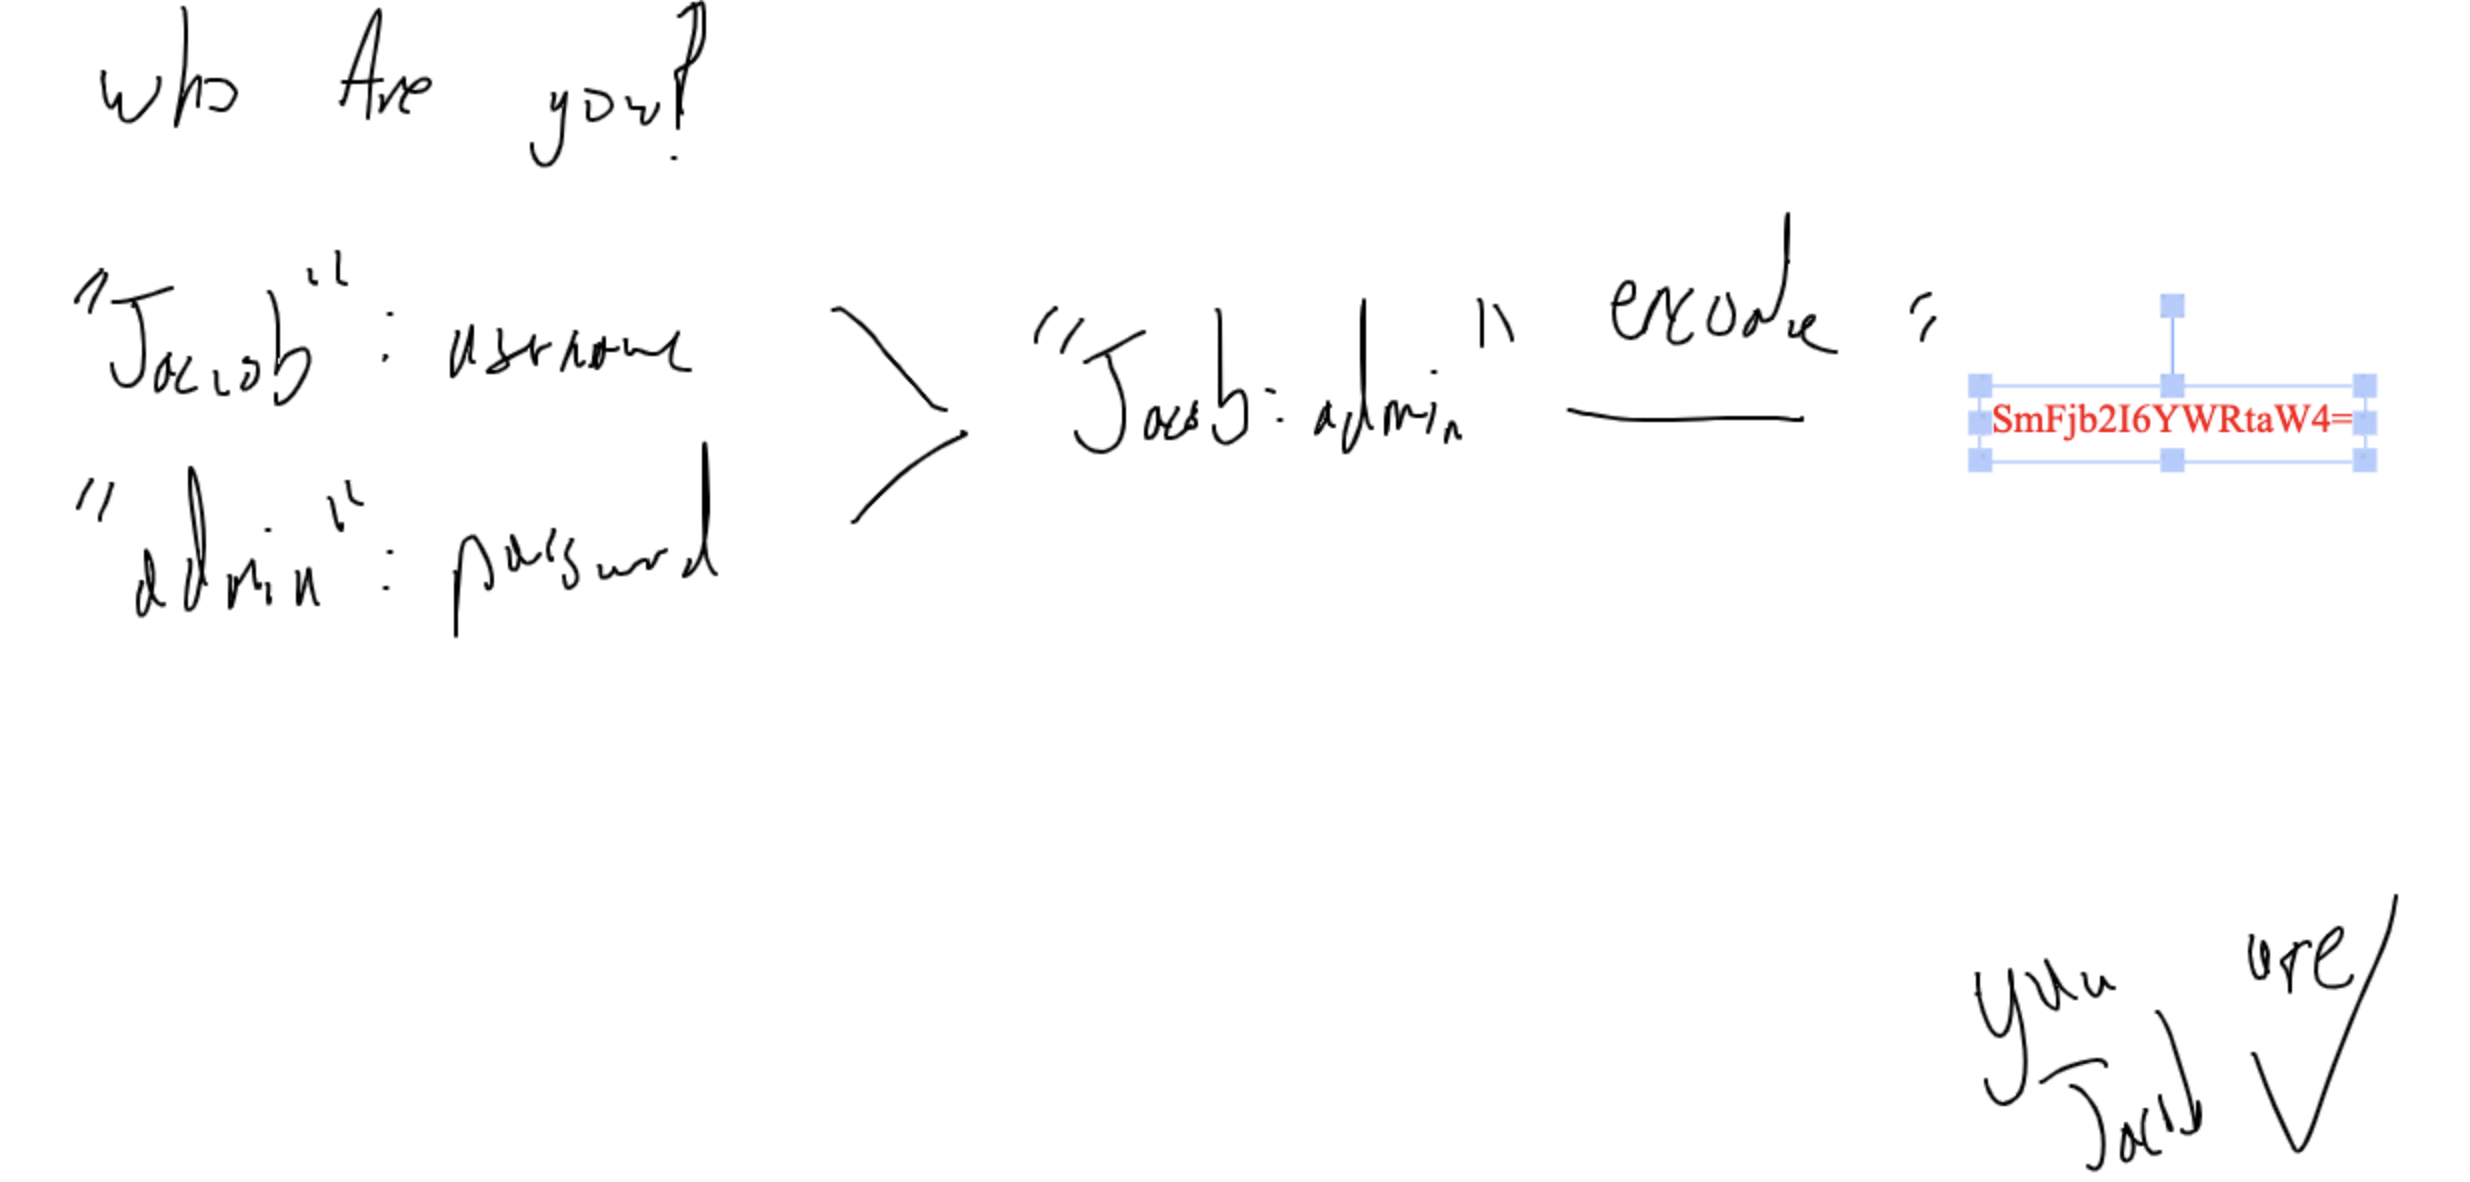 Who Are you?
"Jacob" : username
"admin" : password
"Jacob: admin"
encode
"
SmFjb2I6YWRtaW4=
you are
Jacob